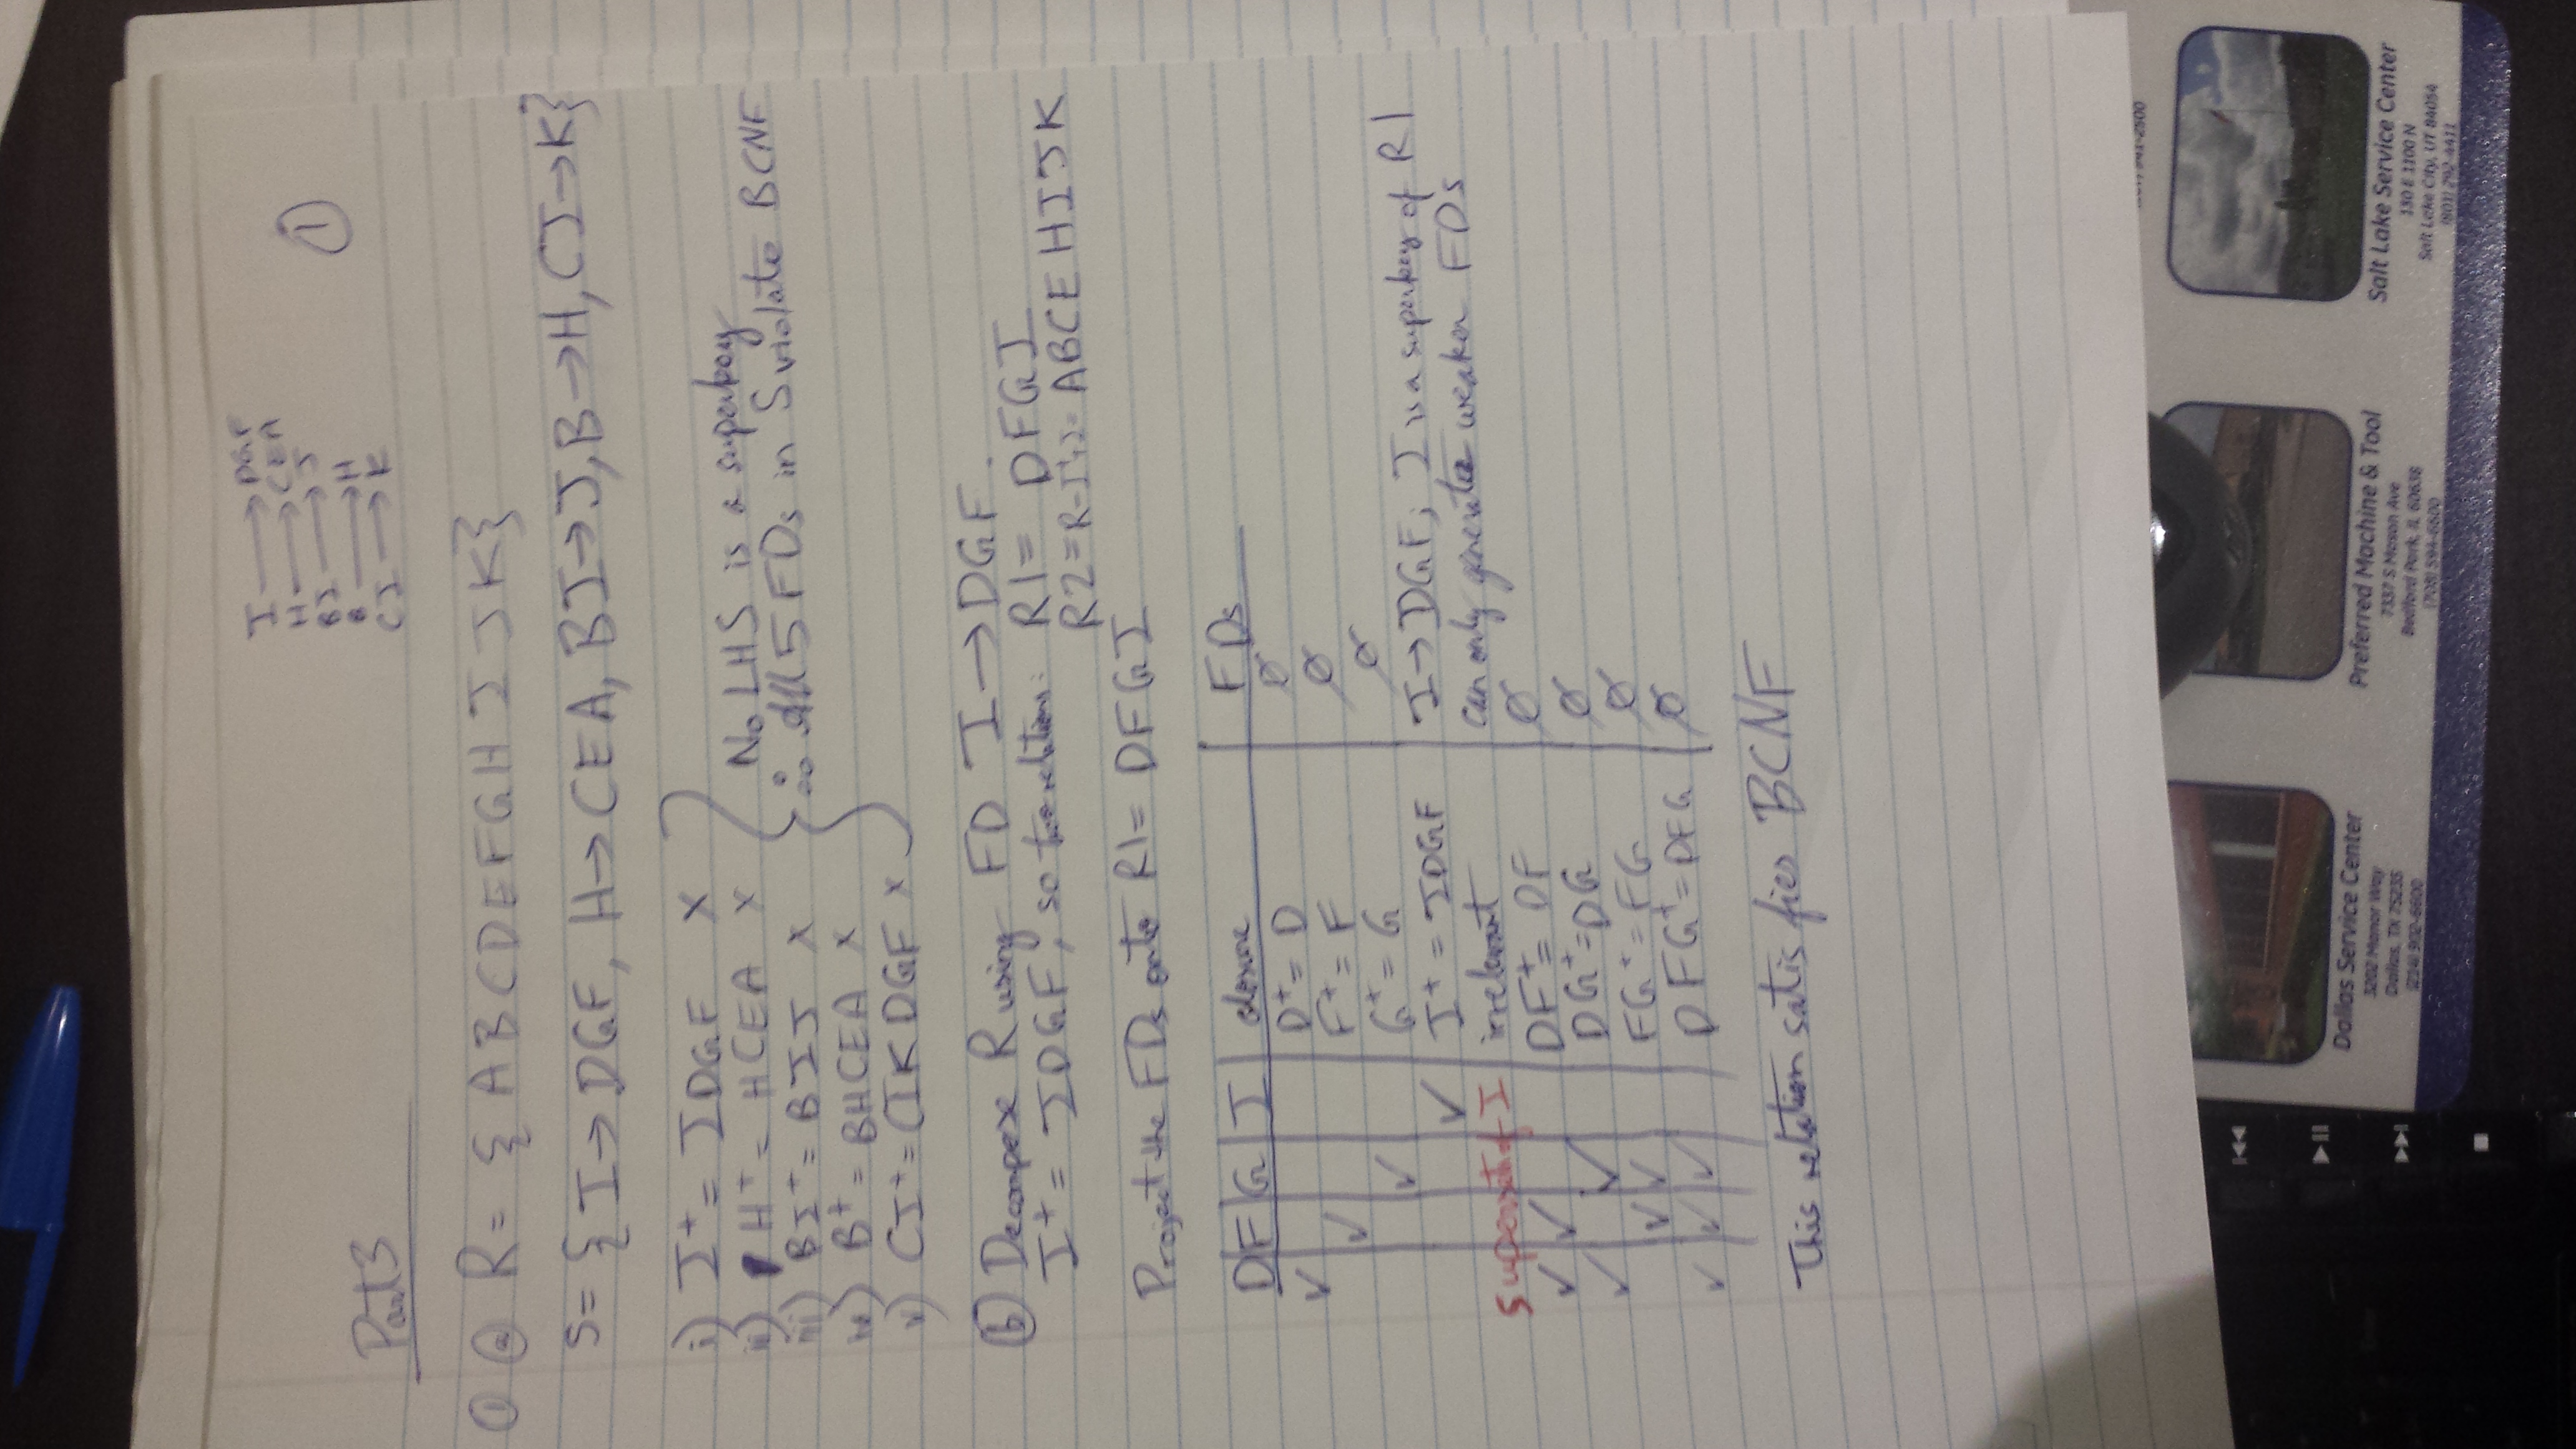 ①
I → DGF
H → CEA
BI → J
B → H
CI → K
Part 3
① ⓐ R = { A B C D E F G H I J K }
S = { I → DGF, H → CEA, BI → J, B → H, CI → K }
i) I⁺ = IDGF x
ii) H⁺ = HCEA x
iii) BI⁺ = BIJ x
iv) B⁺ = BHCEA x
v) CI⁺ = CIKDGF x
No LHS is a superkey
∴ all 5 FDs in S violate BCNF
ⓑ Decompose R using FD I → DGF.
I⁺ = IDGF, so two relations: R1 = DFGI
R2 = R-I⁺ = ABCEHIJK
Project the FDs onto R1 = DFGI
D F G I closure FDs
✓ D⁺ = D ∅
✓ F⁺ = F ∅
✓ G⁺ = G ∅
✓ I⁺ = IDGF I → DGF; I is a superkey of R1
Supersets of I irrelevant can only generate weaker FDs
✓ ✓ DF⁺ = DF ∅
✓ ✓ DG⁺ = DG ∅
✓ ✓ FG⁺ = FG ∅
✓ ✓ ✓ DFG⁺ = DFG ∅
This relation satisfies BCNF
Dallas Service Center
3202 Manor Way
Dallas, TX 75235
(214) 902-6600
Preferred Machine & Tool
7337 S Mason Ave
Bedford Park, IL 60638
(708) 594-6600
Salt Lake Service Center
130 E 1100 N
Salt Lake City, UT 84054
(801) 292-4411